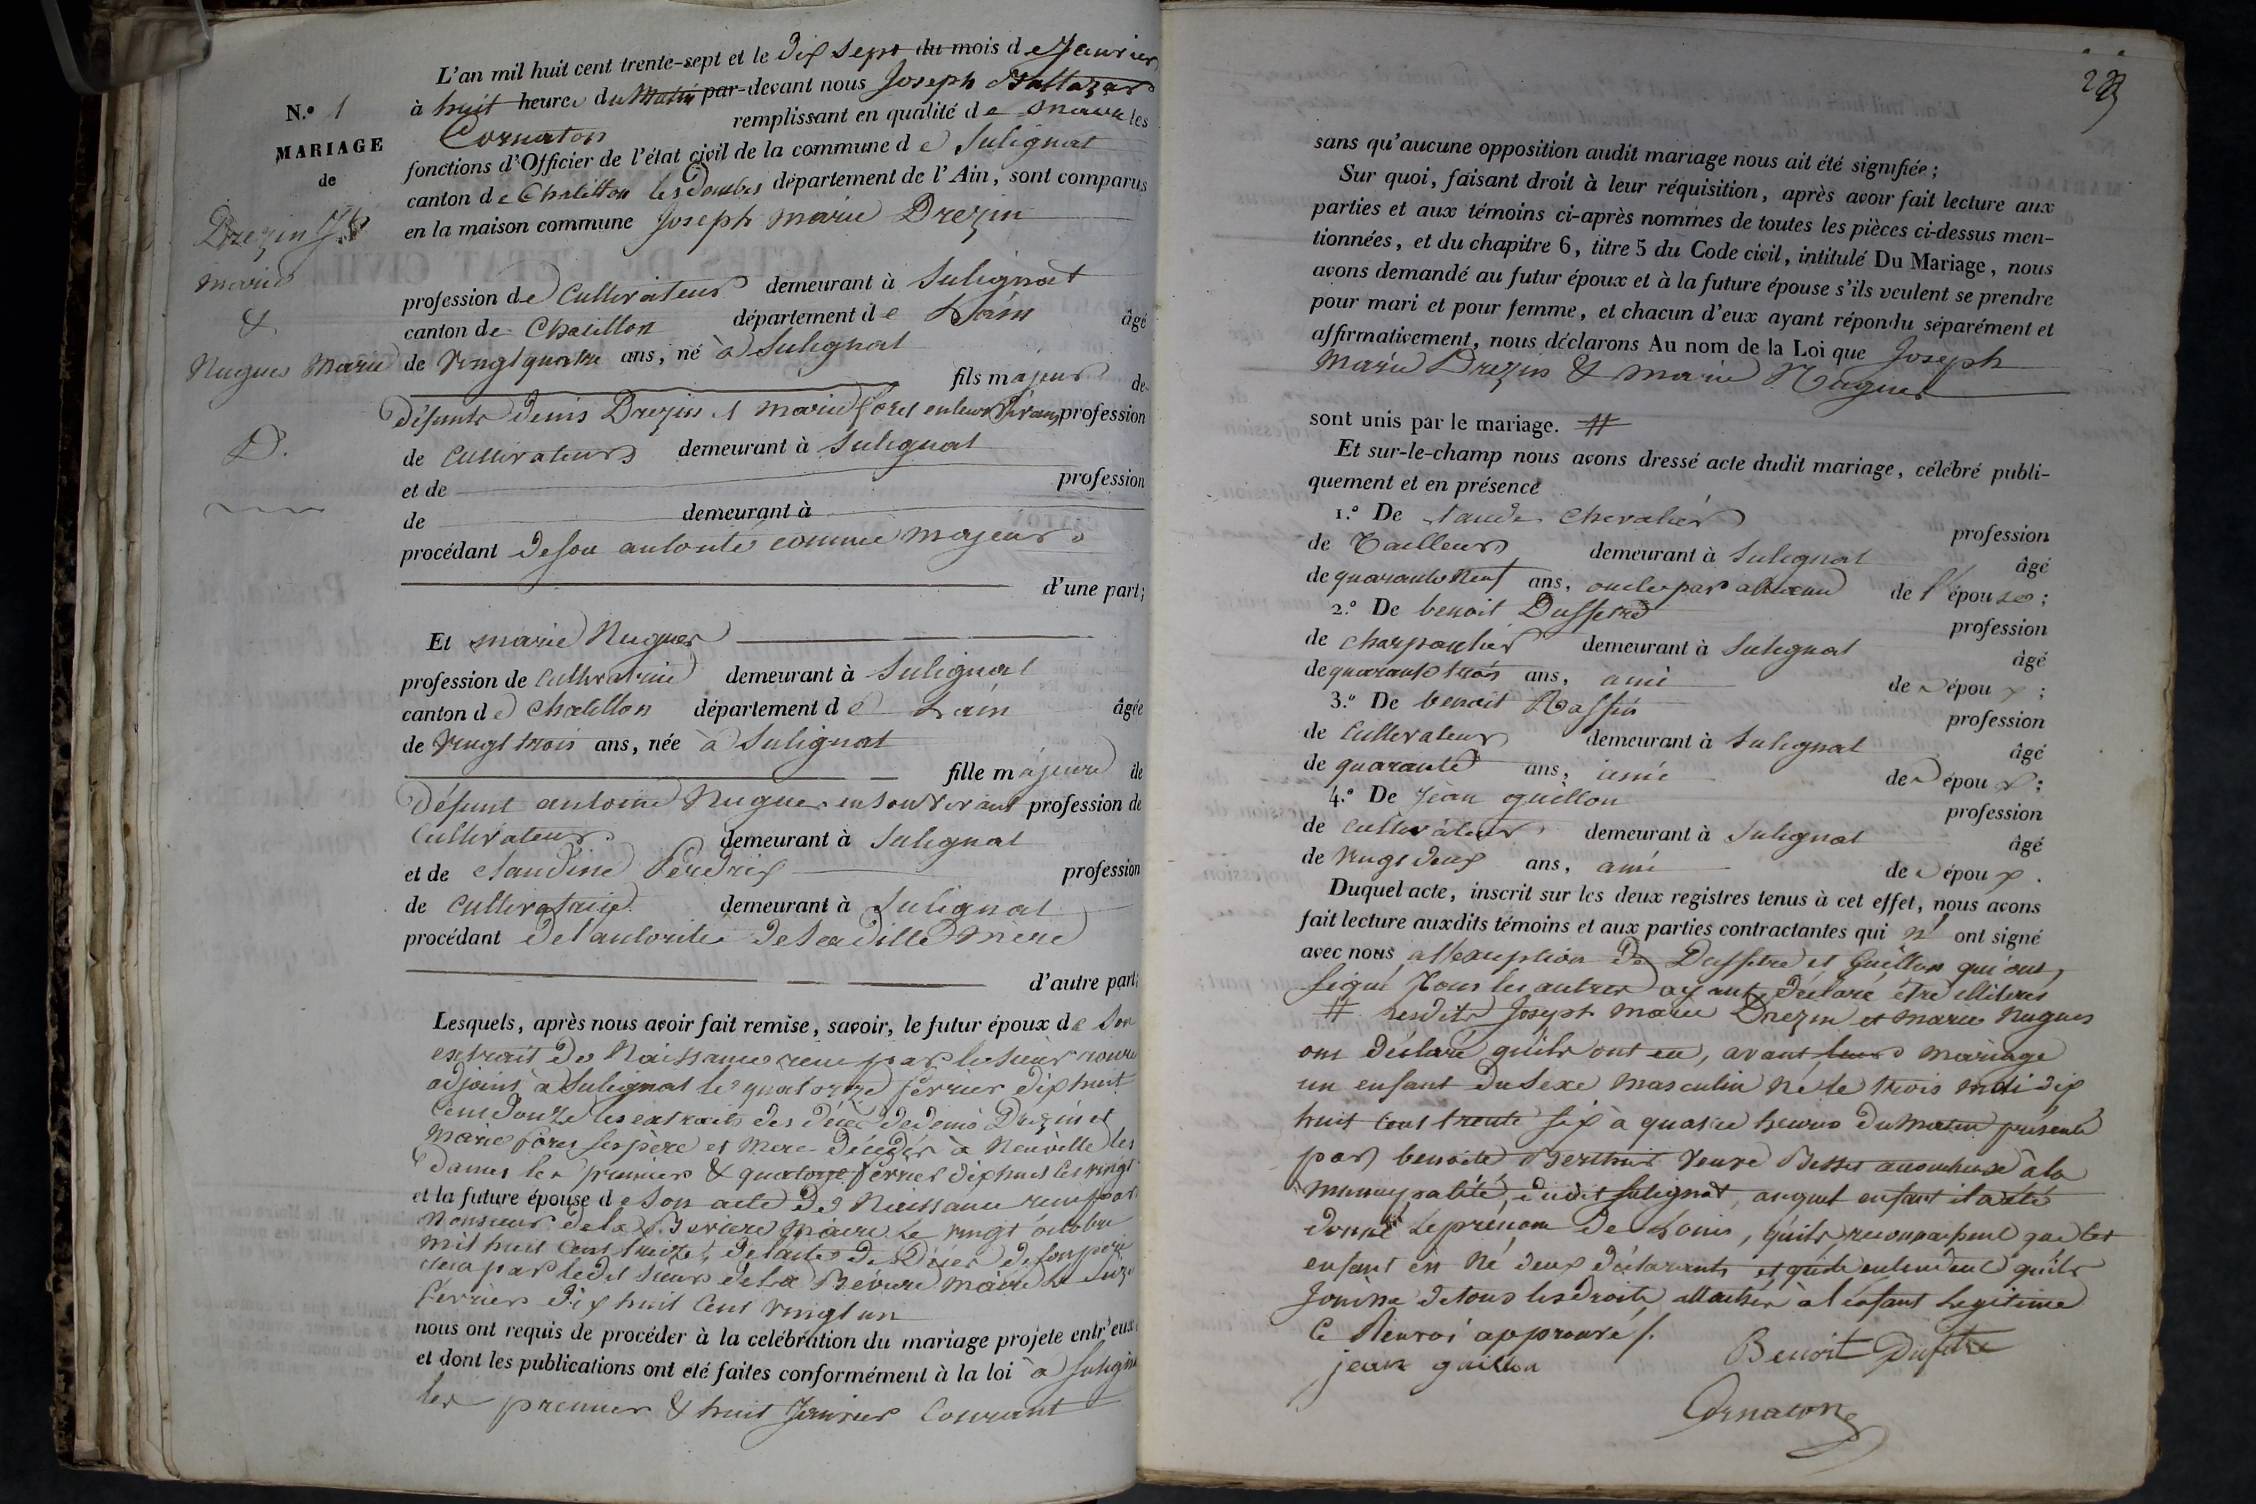 N.o 1
MARIAGE
de
Drezin Jh
Marie
&
Nugues Marie
D.
L'an mil huit cent trente-sept et le dix sept du mois de Janvier
à huit heures du Matin par-devant nous Joseph Baltazard
Cornaton remplissant en qualité de Maire les
fonctions d'Officier de l'état civil de la commune de Sulignat
canton de Chatillon les Dombes département de l'Ain, sont comparus
en la maison commune Joseph Marie Drezin
profession de Cultivateur demeurant à Sulignat
canton de Chatillon département de L'ain âgé
de Vingt quatre ans, né à Sulignat
fils majeur de
défunts denis Drezin et marie forest en leur vivant profession
de Cultivateurs demeurant à Sulignat
et de profession
de demeurant à
procédant de son autorité comme majeur
d'une part;
Et marie Nugues
profession de Cultivatrice demeurant à Sulignat
canton de Chatillon département de L'ain âgée
de Vingt trois ans, née à Sulignat
fille majeure de
défunt antoine Nugues en son vivant profession de
Cultivateur demeurant à Sulignat
et de claudine Perdrix profession
de Cultivatrice demeurant à Sulignat
procédant de l'autorité de sa dille mere
d'autre part;
Lesquels, après nous avoir fait remise, savoir, le futur époux de son
extrait de Naissance recu par le sieur
adjoint à Sulignat le quatorze février dix huit
Cent douze les extraits des décès de denis Drezin et
Marie forest ses père et Mere décédés à Neuville les
Dames les premier & quatorze février dix huit Cent vingt
et la future épouse de son acte de Naissance recu par
Monsieur dela Beviere Maire le vingt octobre
mil huit Cent treize, de l'acte de Décès de son père
recu par le dit sieur dela Béviere Maire le
février dix huit Cent vingt un
nous ont requis de procéder à la celébration du mariage projete entr'eux
et dont les publications ont été faites conformément à la loi à Sulignat
les premier & huit Janvier Courant
223
sans qu'aucune opposition audit mariage nous ait été signifiée;
Sur quoi, faisant droit à leur réquisition, après avoir fait lecture aux
parties et aux témoins ci-après nommes de toutes les pièces ci-dessus men-
tionnées, et du chapitre 6, titre 5 du Code civil, intitulé Du Mariage, nous
avons demandé au futur époux et à la future épouse s'ils veulent se prendre
pour mari et pour femme, et chacun d'eux ayant répondu séparément et
affirmativement, nous déclarons Au nom de la Loi que Joseph
Marie Drezin & marie Nugues
sont unis par le mariage. #
Et sur-le-champ nous avons dressé acte dudit mariage, célébré publi-
quement et en présence
1.o De Claude Chevalier profession
de Tailleur demeurant à Sulignat âgé
de quarante Neuf ans, oncle par alliance de l'épouse;
2.o De benoit Duffetre profession
de charpentier demeurant à Sulignat âgé
de quarante trois ans, ami de l'époux;
3.o De benoit Raffin profession
de Cultivateur demeurant à Sulignat âgé
de quarante ans, ami de l'époux;
4.o De Jean guillon profession
de Cultivateur demeurant à Sulignat âgé
de Vingt deux ans, ami de l'époux.
Duquel acte, inscrit sur les deux registres tenus à cet effet, nous avons
fait lecture auxdits témoins et aux parties contractantes qui n'ont signé
avec nous a l'exeuption de Duffetre et Guillon qui ont
signé tous les autres ayant déclaré être illiterés
# lesdits Joseph Marie Drezin et Marie Nugues
ont déclaré qu'ils ont eu, avant leur mariage
un enfant du sexe masculin né le trois mai dix
huit Cent trente six à quatre heures du Matin présenté
par benoite Berthet Veuve Besset accoucheuse à la
municipalité dudit Sulignat, auquel enfant il a été
donné le prénom de Louis, qu'ils reconnaissent que cet
enfant est né deux déclarants et qu'ils entendent qu'ils
Jouisse de tous les droits attachés à l'enfant Legitime
Ce Renvoi approuvé /.
jean guillon Benoit Dufetre
Cornaton